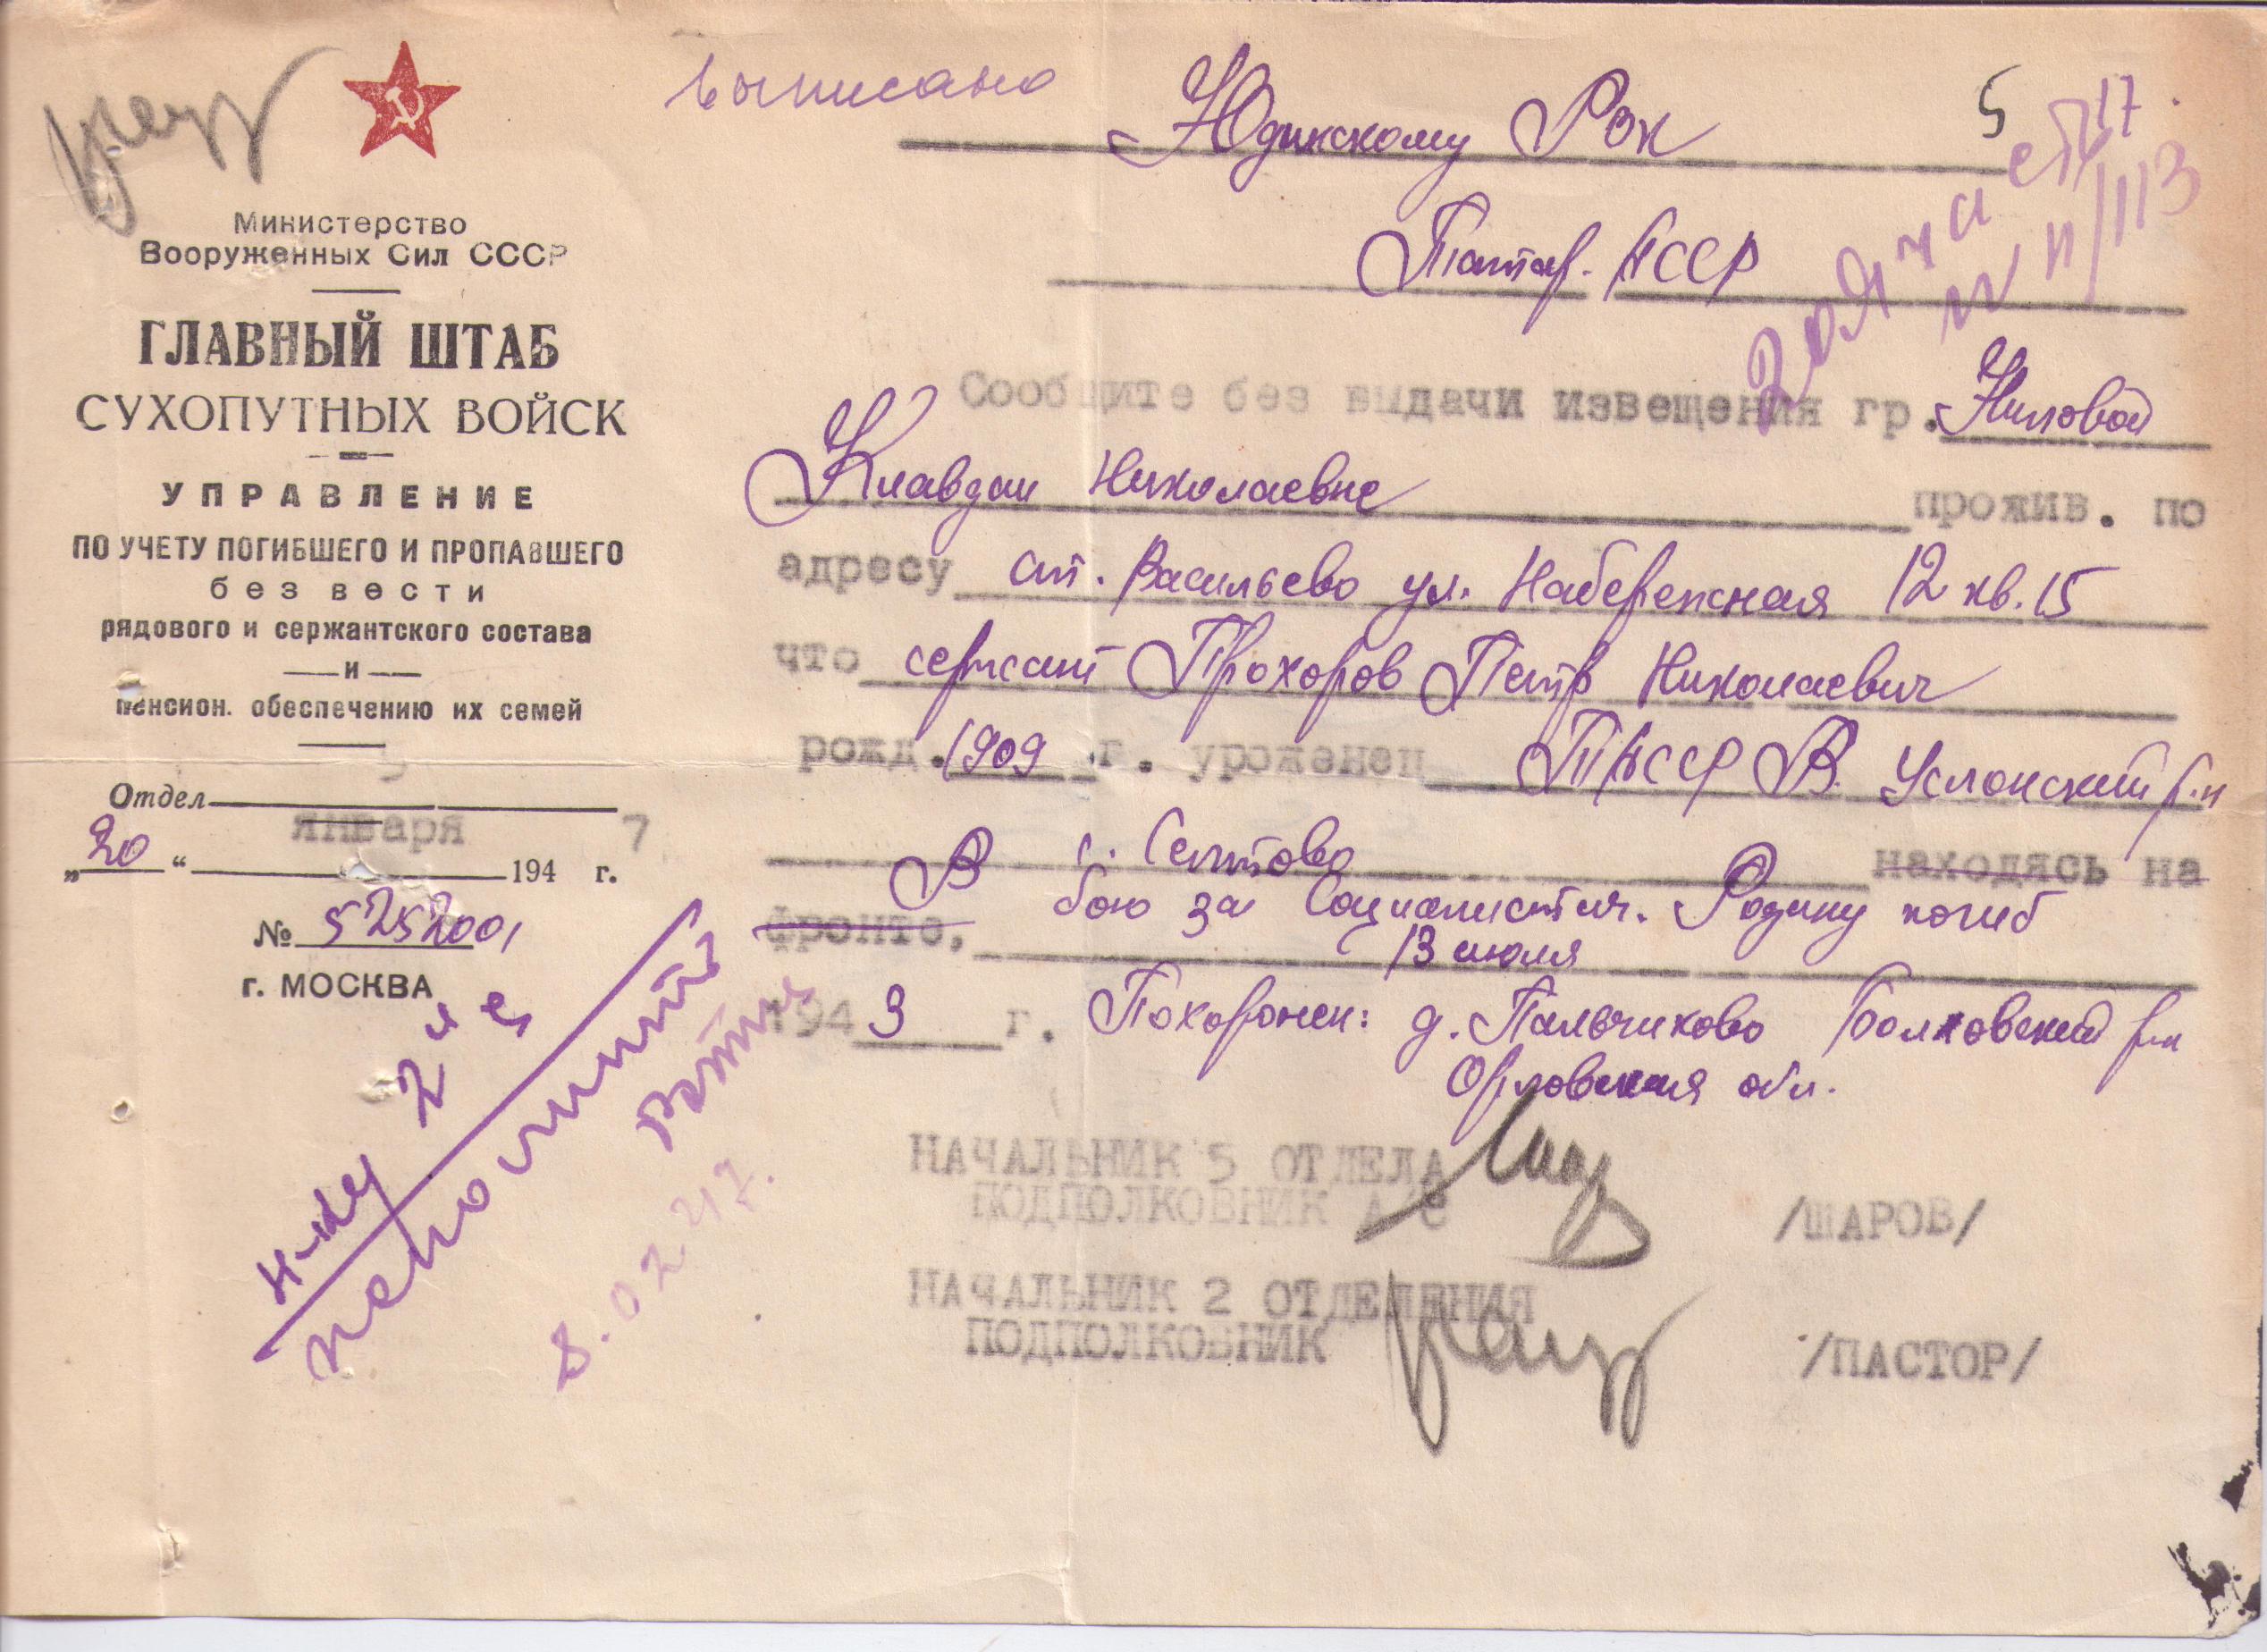 выписано
Юдинскому РВК
5
Татар. АССР
Министерство
Вооруженных Сил СССР
ГЛАВНЫЙ ШТАБ
СУХОПУТНЫХ ВОЙСК
УПРАВЛЕНИЕ
ПО УЧЕТУ ПОГИБШЕГО И ПРОПАВШЕГО
без вести
рядового и сержантского состава
— и —
пенсион. обеспечению их семей
Отдел 5
„20“ января 1947 г.
№ 5252001
г. МОСКВА
Сообщите без выдачи извещения гр. Ниловой
Клавдии Николаевне прожив. по
адресу ст. Васильево ул. Набережная 12 кв. 15
что сержант Прохоров Петр Николаевич
рожд. 1909 г. уроженец ТАССР В. Услонский р-н
с. Сеитово находясь на
фронте, В бою за Социалистич. Родину погиб
13 июля
1943 г. Похоронен: д. Пальчиково Болховский р-н
Орловская обл.
НАЧАЛЬНИК 5 ОТДЕЛА
ПОДПОЛКОВНИК А/С /ШАРОВ/
НАЧАЛЬНИК 2 ОТДЕЛЕНИЯ
ПОДПОЛКОВНИК /ПАСТОР/
2 ой части
н-ку 2 ч
исполнить
8.02.47.